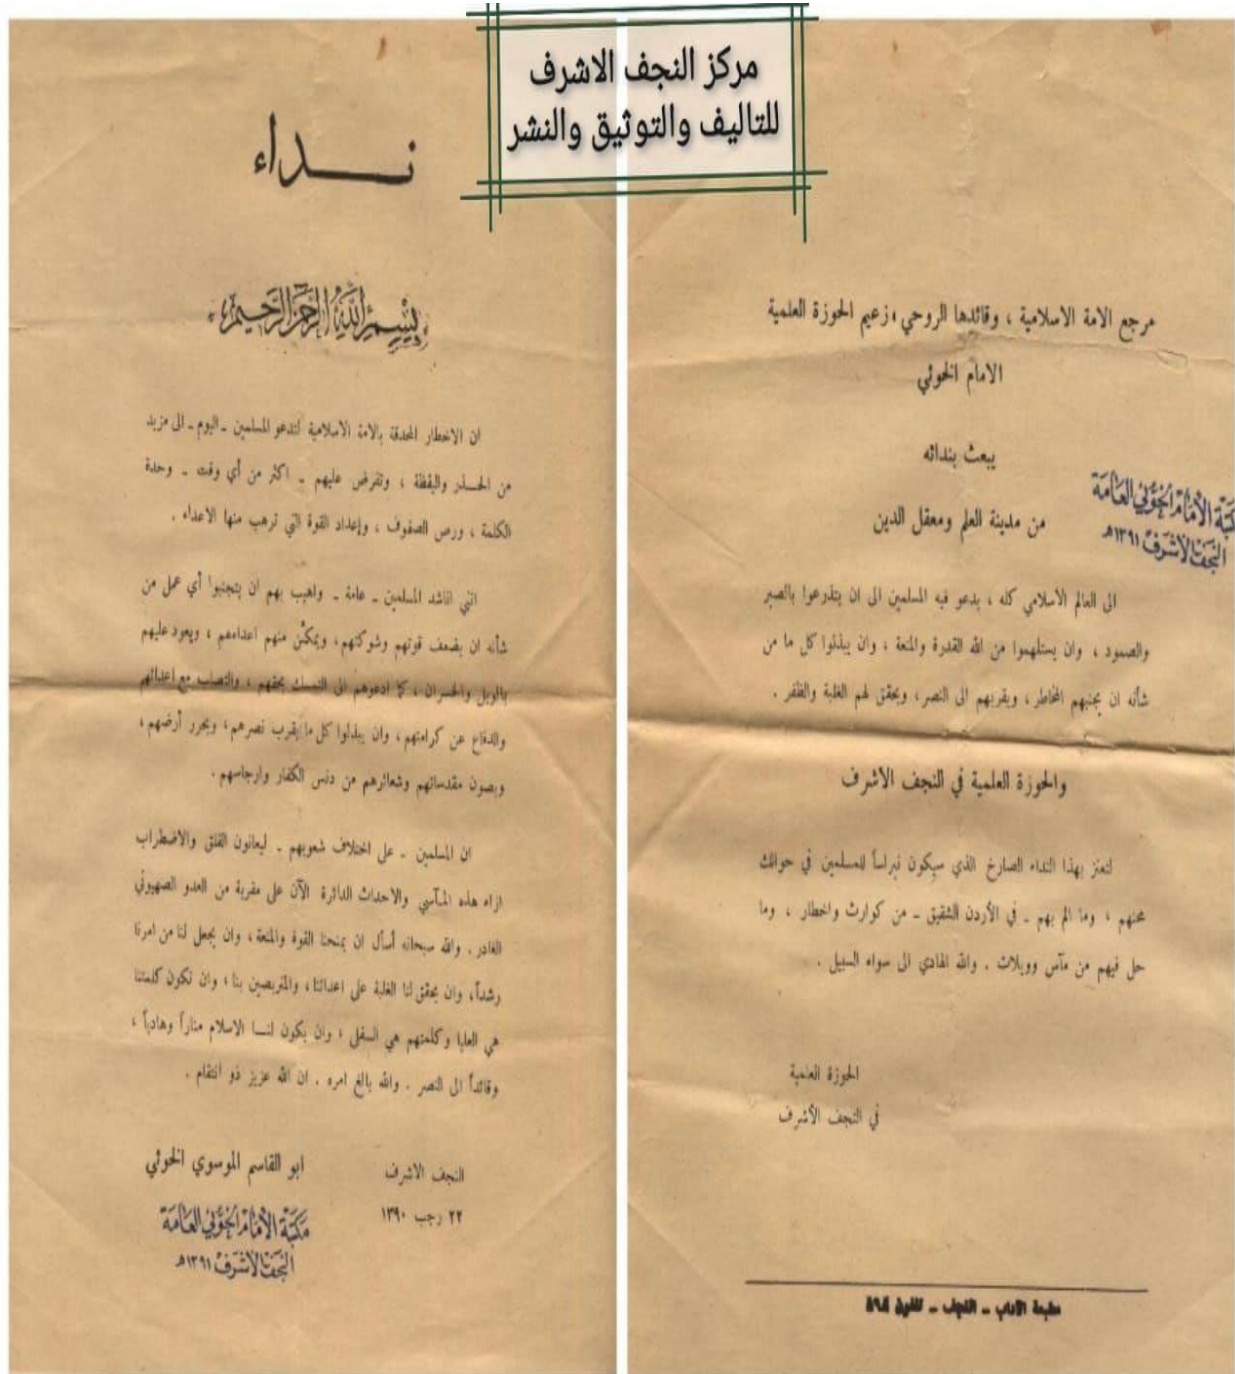 مركز النجف الاشرف
للتاليف والتوثيق والنشر
مرجع الامة الاسلامية ، وقائدها الروحي ، زعيم الحوزة العلمية
الامام الخوئي
يبعث بندائه
من مدينة العلم ومعقل الدين
مكتبة الامام الخوئي العامة
النجف الاشرف ١٣٩١هـ
الى العالم الاسلامي كله ، يدعو فيه المسلمين الى ان يتذرعوا بالصبر
والصمود ، وان يستلهموا من الله القدرة والمنعة ، وان يبذلوا كل ما من
شأنه ان يجنبهم المخاطر ، ويقربهم الى النصر، ويحقق لهم الغلبة والظفر .
والحوزة العلمية في النجف الاشرف
لتعتز بهذا النداء الصارخ الذي سيكون نبراساً للمسلمين في حوالك
محنهم ، وما الم بهم ـ في الأردن الشقيق ـ من كوارث واخطار ، وما
حل فيهم من مآس وويلات . والله الهادي الى سواء السبيل .
الحوزة العلمية
في النجف الأشرف
مطبعة الآداب ـ النجف ـ تلفون
نـــداء
بسم الله الرحمن الرحيم
ان الاخطار المحدقة بالامة الاسلامية لتدعو المسلمين ـ اليوم ـ الى مزيد
من الحـذر واليقظة ، وتفرض عليهم ـ اكثر من أي وقت ـ وحدة
الكلمة ، ورص الصفوف ، وإعداد القوة التي ترهب منها الاعداء .
انني اناشد المسلمين ـ عامة ـ واهيب بهم ان يتجنبوا أي عمل من
شأنه ان يضعف قوتهم وشوكتهم، ويمكّن منهم اعداءهم ، ويعود عليهم
بالويل والخسران ، كما ادعوهم الى التمسك بحقهم ، والتصلب مع اعدائهم
والدفاع عن كرامتهم، وان يبذلوا كل ما يقرب نصرهم، ويحرر أرضهم،
ويصون مقدساتهم وشعائرهم من دنس الكفار وارجاسهم .
ان المسلمين ـ على اختلاف شعوبهم ـ ليعانون القلق والاضطراب
ازاء هذه المآسي والاحداث الدائرة الآن على مقربة من العدو الصهيوني
الغادر . والله سبحانه أسأل ان يمنحنا القوة والمنعة ، وان يجعل لنا من امرنا
رشداً، وان يحقق لنا الغلبة على اعدائنا، والمتربصين بنا ، وان تكون كلمتنا
هي العليا وكلمتهم هي السفلى ، وان يكون لنـا الاسلام مناراً وهادياً ،
وقائداً الى النصر . والله بالغ امره . ان الله عزيز ذو انتقام .
النجف الاشرف
٢٢ رجب ١٣٩٠
ابو القاسم الموسوي الخوئي
مكتبة الامام الخوئي العامة
النجف الاشرف ١٣٩١هـ